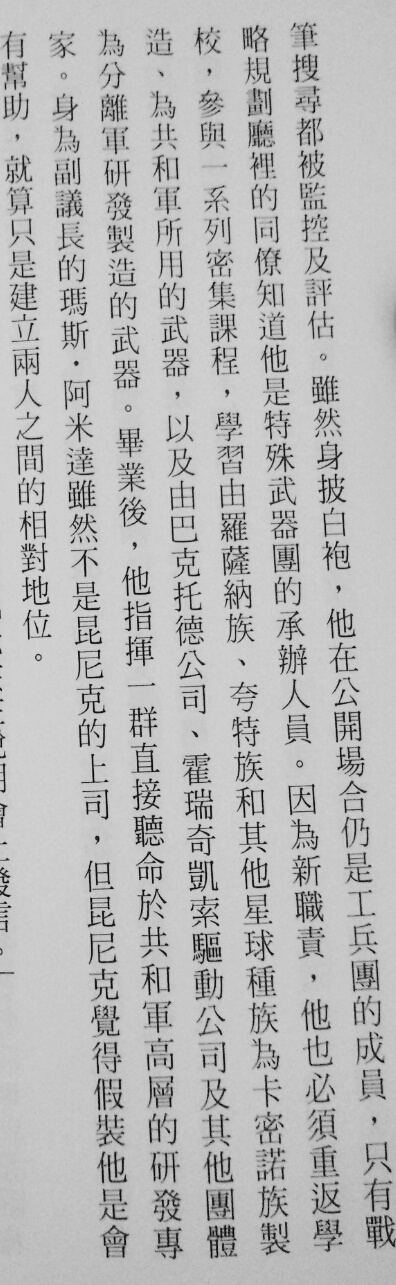 筆搜尋都被監控及評估。雖然身披白袍，他在公開場合仍是工兵團的成員，只有戰
略規劃廳裡的同僚知道他是特殊武器團的承辦人員。因為新職責，他也必須重返學
校，參與一系列密集課程，學習由羅薩納族、夸特族和其他星球種族為卡密諾族製
造、為共和軍所用的武器，以及由巴克托德公司、霍瑞奇凱索驅動公司及其他團體
為分離軍研發製造的武器。畢業後，他指揮一群直接聽命於共和軍高層的研發專
家。身為副議長的瑪斯・阿米達雖然不是昆尼克的上司，但昆尼克覺得假裝他是會
有幫助，就算只是建立兩人之間的相對地位。
發言。